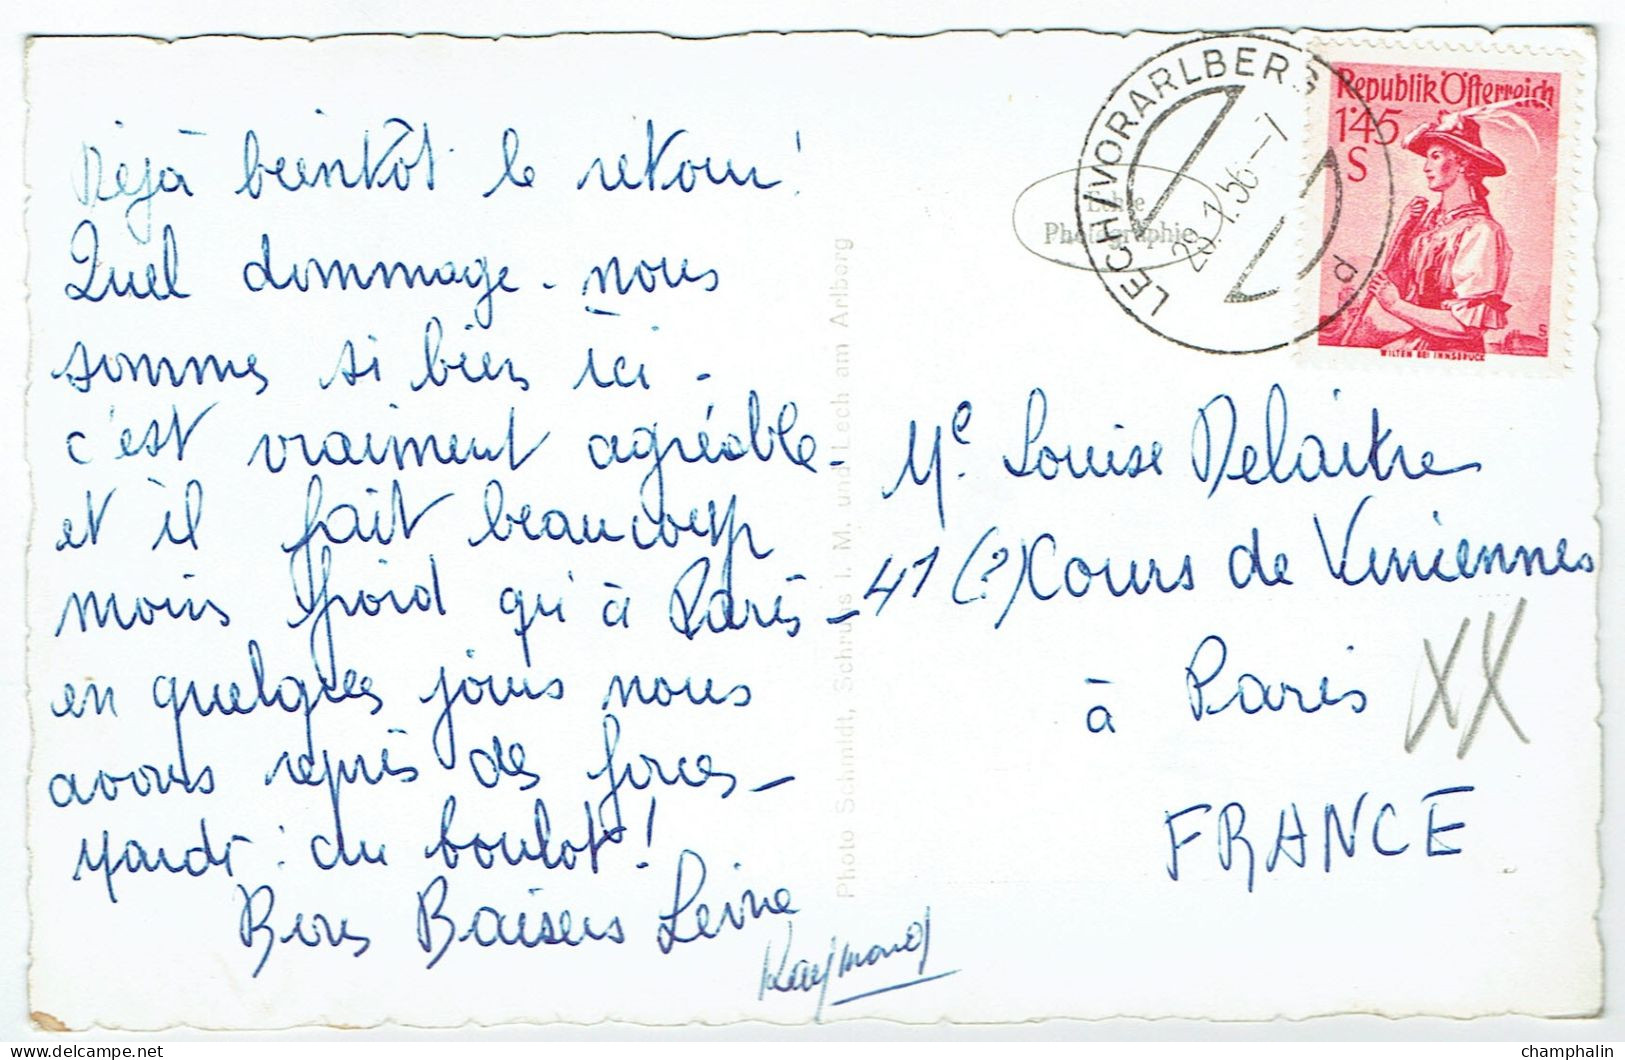 Déjà bientôt le retour!
Quel dommage. nous
sommes si bien ici -
c'est vraiment agréable -
et il fait beaucoup
moins froid qu'à Paris -
en quelques jours nous
avons repris des forces -
Mardi : du boulot!
Bons Baisers
Raymond
Photo Schmidt, Schruns i. M. und Lech am Arlberg
Echte
Photographie
LECH/VORARLBERG
28.-1.56-7
d
Republik Österreich
1'45
S
WILTEN BEI INNSBRUCK
Me Louise Delaitre
41 (?) Cours de Vincennes
à Paris XX
FRANCE
champhalin
delcampe.net